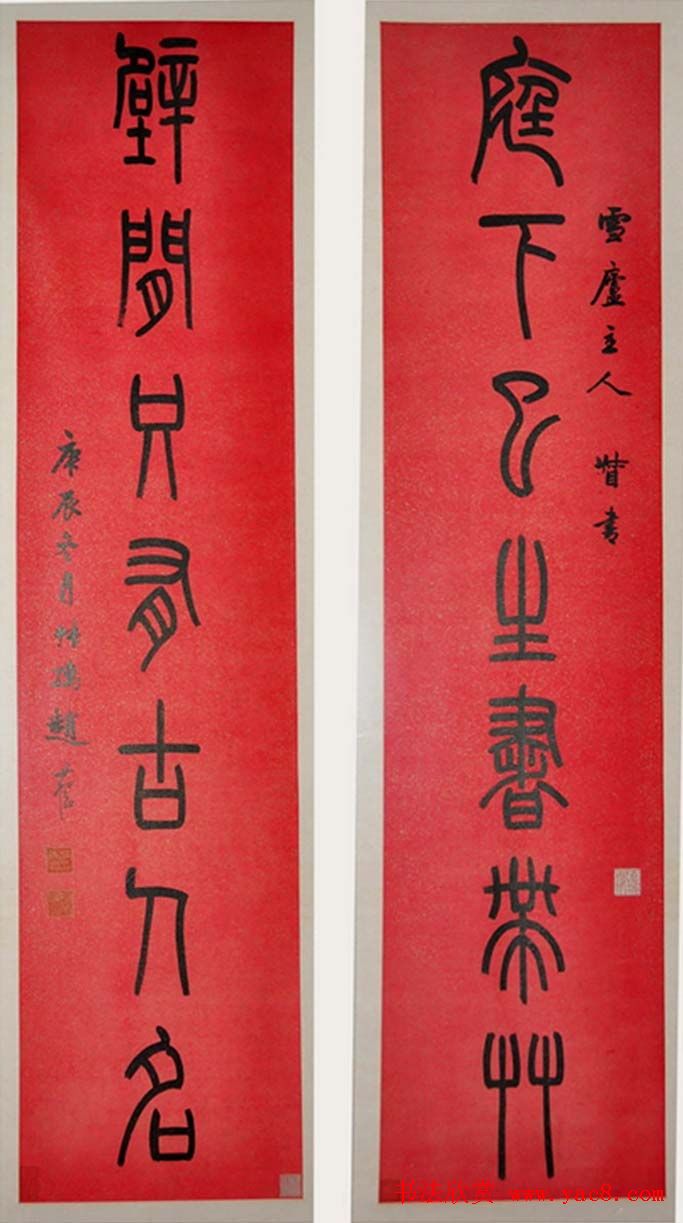 庭下已生書帶艸
雪廬主人 督書
壁閒只有古人名
庚辰冬月叔孺趙
书法欣赏 www.yac8.com